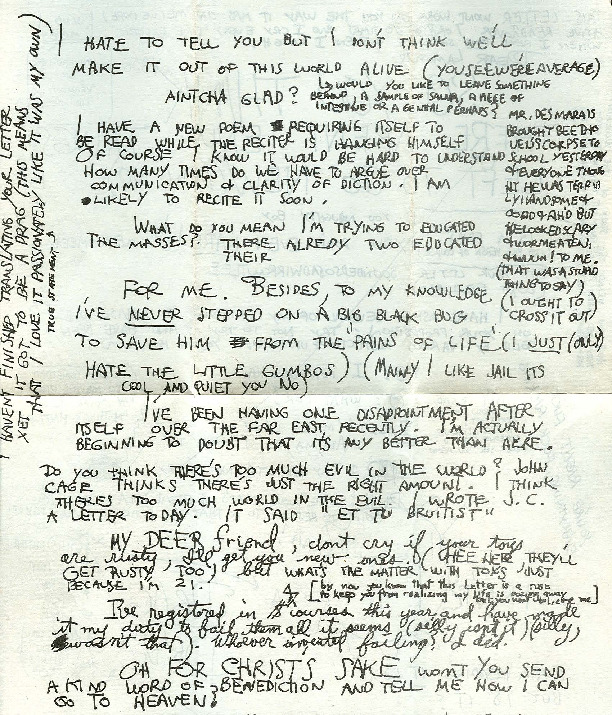 I HATE TO TELL YOU BUT I DON'T THINK WE'LL
MAKE IT OUT OF THIS WORLD ALIVE (YOUSEEWE'REAVERAGE)
AINTCHA GLAD?
WOULD YOU LIKE TO LEAVE SOMETHING
BEHIND, A SAMPLE OF SALIVA, A PIECE OF
INTESTINE OR A GENITAL PERHAPS?
I HAVE A NEW POEM REQUIRING ITSELF TO
BE READ WHILE THE RECITER IS HANGING HIMSELF
OF COURSE I KNOW IT WOULD BE HARD TO UNDERSTAND
HOW MANY TIMES DO WE HAVE TO ARGUE OVER
COMMUNICATION & CLARITY OF DICTION. I AM
LIKELY TO RECITE IT SOON.
WHAT DO YOU MEAN I'M TRYING TO EDUCATED
THE MASSES? THERE ALREDY TWO EDUCATED
THEIR
FOR ME. BESIDES, TO MY KNOWLEDGE
I'VE NEVER STEPPED ON A BIG BLACK BUG
TO SAVE HIM FROM THE PAINS OF LIFE (I JUST (ONLY)
HATE THE LITTLE GUMBOS) (MAINLY I LIKE JAIL ITS
COOL AND QUIET YOU NO)
MR. DESMARAIS
BROUGHT BEETHO
VEN'S CORPSE TO
SCHOOL YESTERDAY
& EVERYONE THOUG
HT HE WAS TERRIB
LY HANDSOME &
GOOD & AH'D BUT
HE LOOKED SCARY
& WORMEATEN,
TO ME.
(THAT WAS A STUPID
THING TO SAY)
(I OUGHT TO)
CROSS IT OUT)
I'VE BEEN HAVING ONE DISAPPOINTMENT AFTER
ITSELF OVER THE FAR EAST, RECENTLY. I'M ACTUALLY
BEGINNING TO DOUBT THAT IT'S ANY BETTER THAN HERE.
DO YOU THINK THERE'S TOO MUCH EVIL IN THE WORLD? JOHN
CAGE THINKS THERE'S JUST THE RIGHT AMOUNT. I THINK
THERES TOO MUCH WORLD IN THE EVIL. I WROTE J.C.
A LETTER TODAY. IT SAID "ET TU BRUITIST"
MY DEER friend, dont cry if your toys
are rusty, I'll get you new ones. (WHEE HERE THEY'LL
GET RUSTY, TOO) but WHAT'S THE MATTER WITH TOYS, JUST
BECAUSE I'M 21.
[by now you know that this letter is a ruse
to keep you from realizing my life is oozing away
I've registered in 8 courses this year and have made
it my duty to fail them all it seems (silly isn't it) (silly,
wasn't that). Whoever invented failing, I died.
OH FOR CHRIST'S SAKE WON'T YOU SEND
A KIND WORD OF BENEDICTION AND TELL ME HOW I CAN
GO TO HEAVEN!
I HAVENT FINISHED TRANSLATING YOUR LETTER
YET IT'S GOT TO BE A DRAG (THIS MEANS
THAT I LOVE IT PASSIONATELY LIKE IT WAS MY OWN)
TRUE STATEMENT